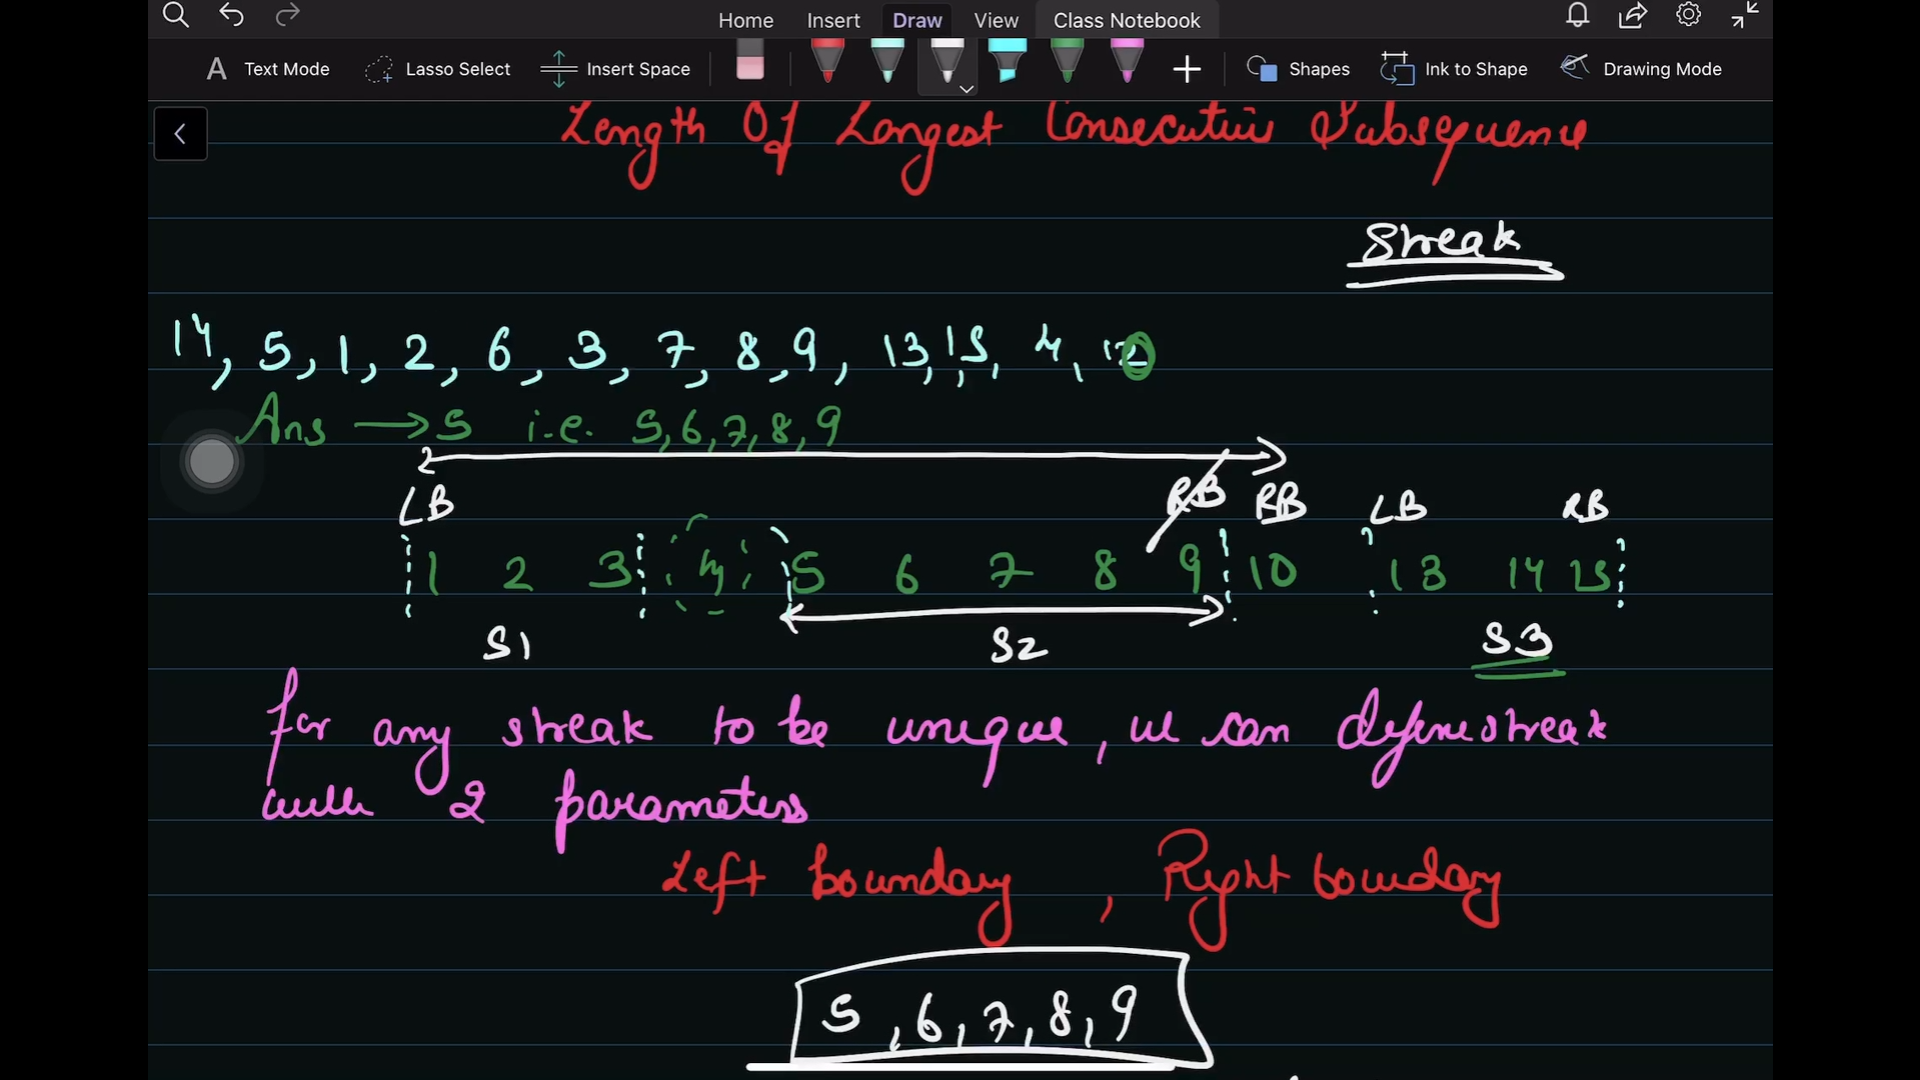 Home Insert Draw View Class Notebook
Text Mode Lasso Select Insert Space Shapes Ink to Shape Drawing Mode
Length Of Longest Consecutive Subsequence
Streak
14, 5, 1, 2, 6, 3, 7, 8, 9, 13, 15, 4,
Ans → 5 i.e. 5,6,7,8,9
LB RB RB LB RB
1 2 3 4 5 6 7 8 9 10 13 14 15
S1 S2 S3
for any streak to be unique, we can define streak
with 2 parameters
Left boundary , Right boundary
5 ,6, 7, 8, 9